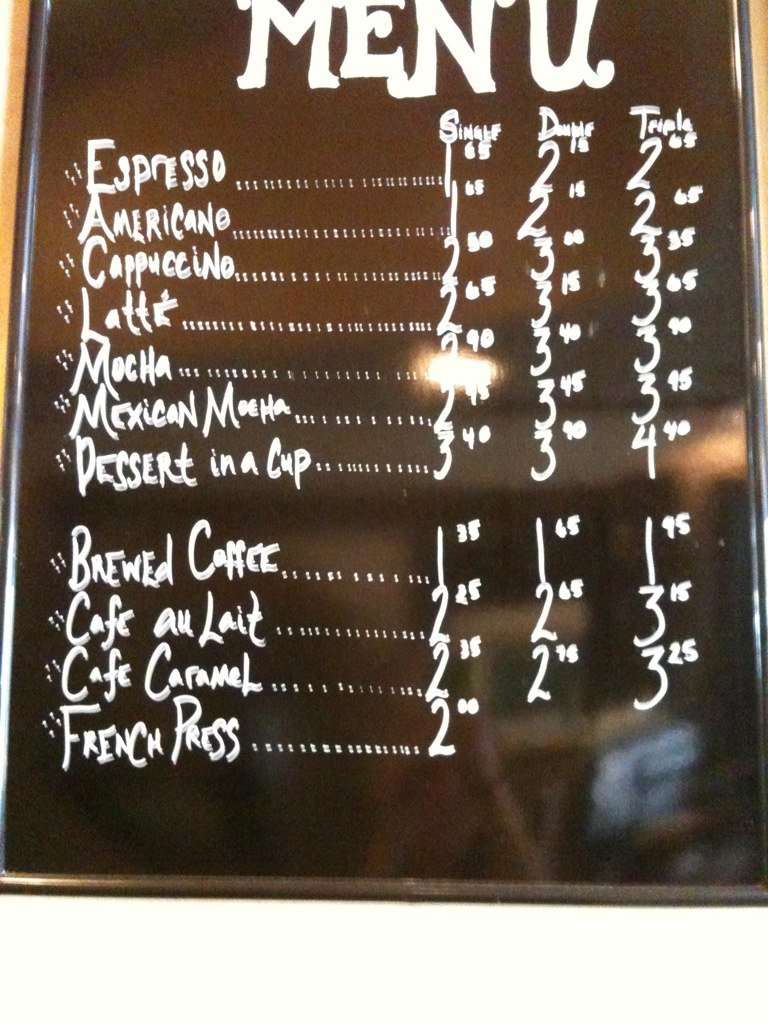 MENU
Single Double Triple
Espresso 1 65 2 15 2 65
Americano 1 65 2 15 2 65
Cappuccino 2 50 3 00 3 35
Latté 2 65 3 15 3 65
Mocha 2 90 3 40 3 90
Mexican Mocha 2 95 3 45 3 95
Dessert in a Cup 3 40 3 90 4 40
Brewed Coffee 1 35 1 65 1 95
Cafe au Lait 2 25 2 65 3 15
Cafe Caramel 2 35 2 75 3 25
French Press 2 00